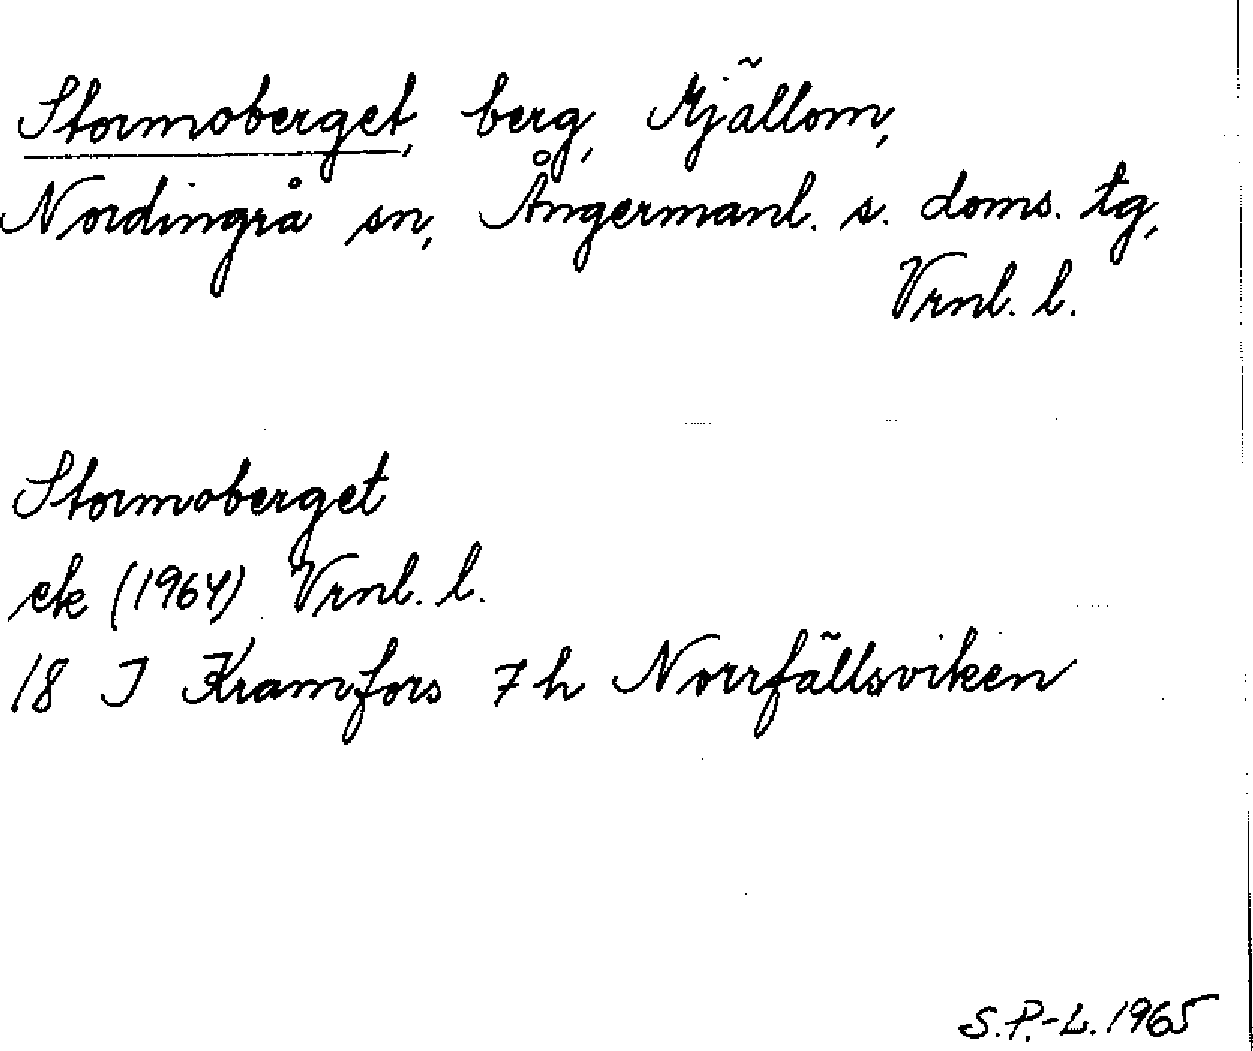 Stormoberget, berg, Mjällom,
Nordingrå sn, Ångermanl. s. doms. tg,
Vrnl. l.
Stormoberget
ek (1964) Vrnl. l.
18 J Kramfors 7 h Norrfällsviken
S.P.-L. 1965